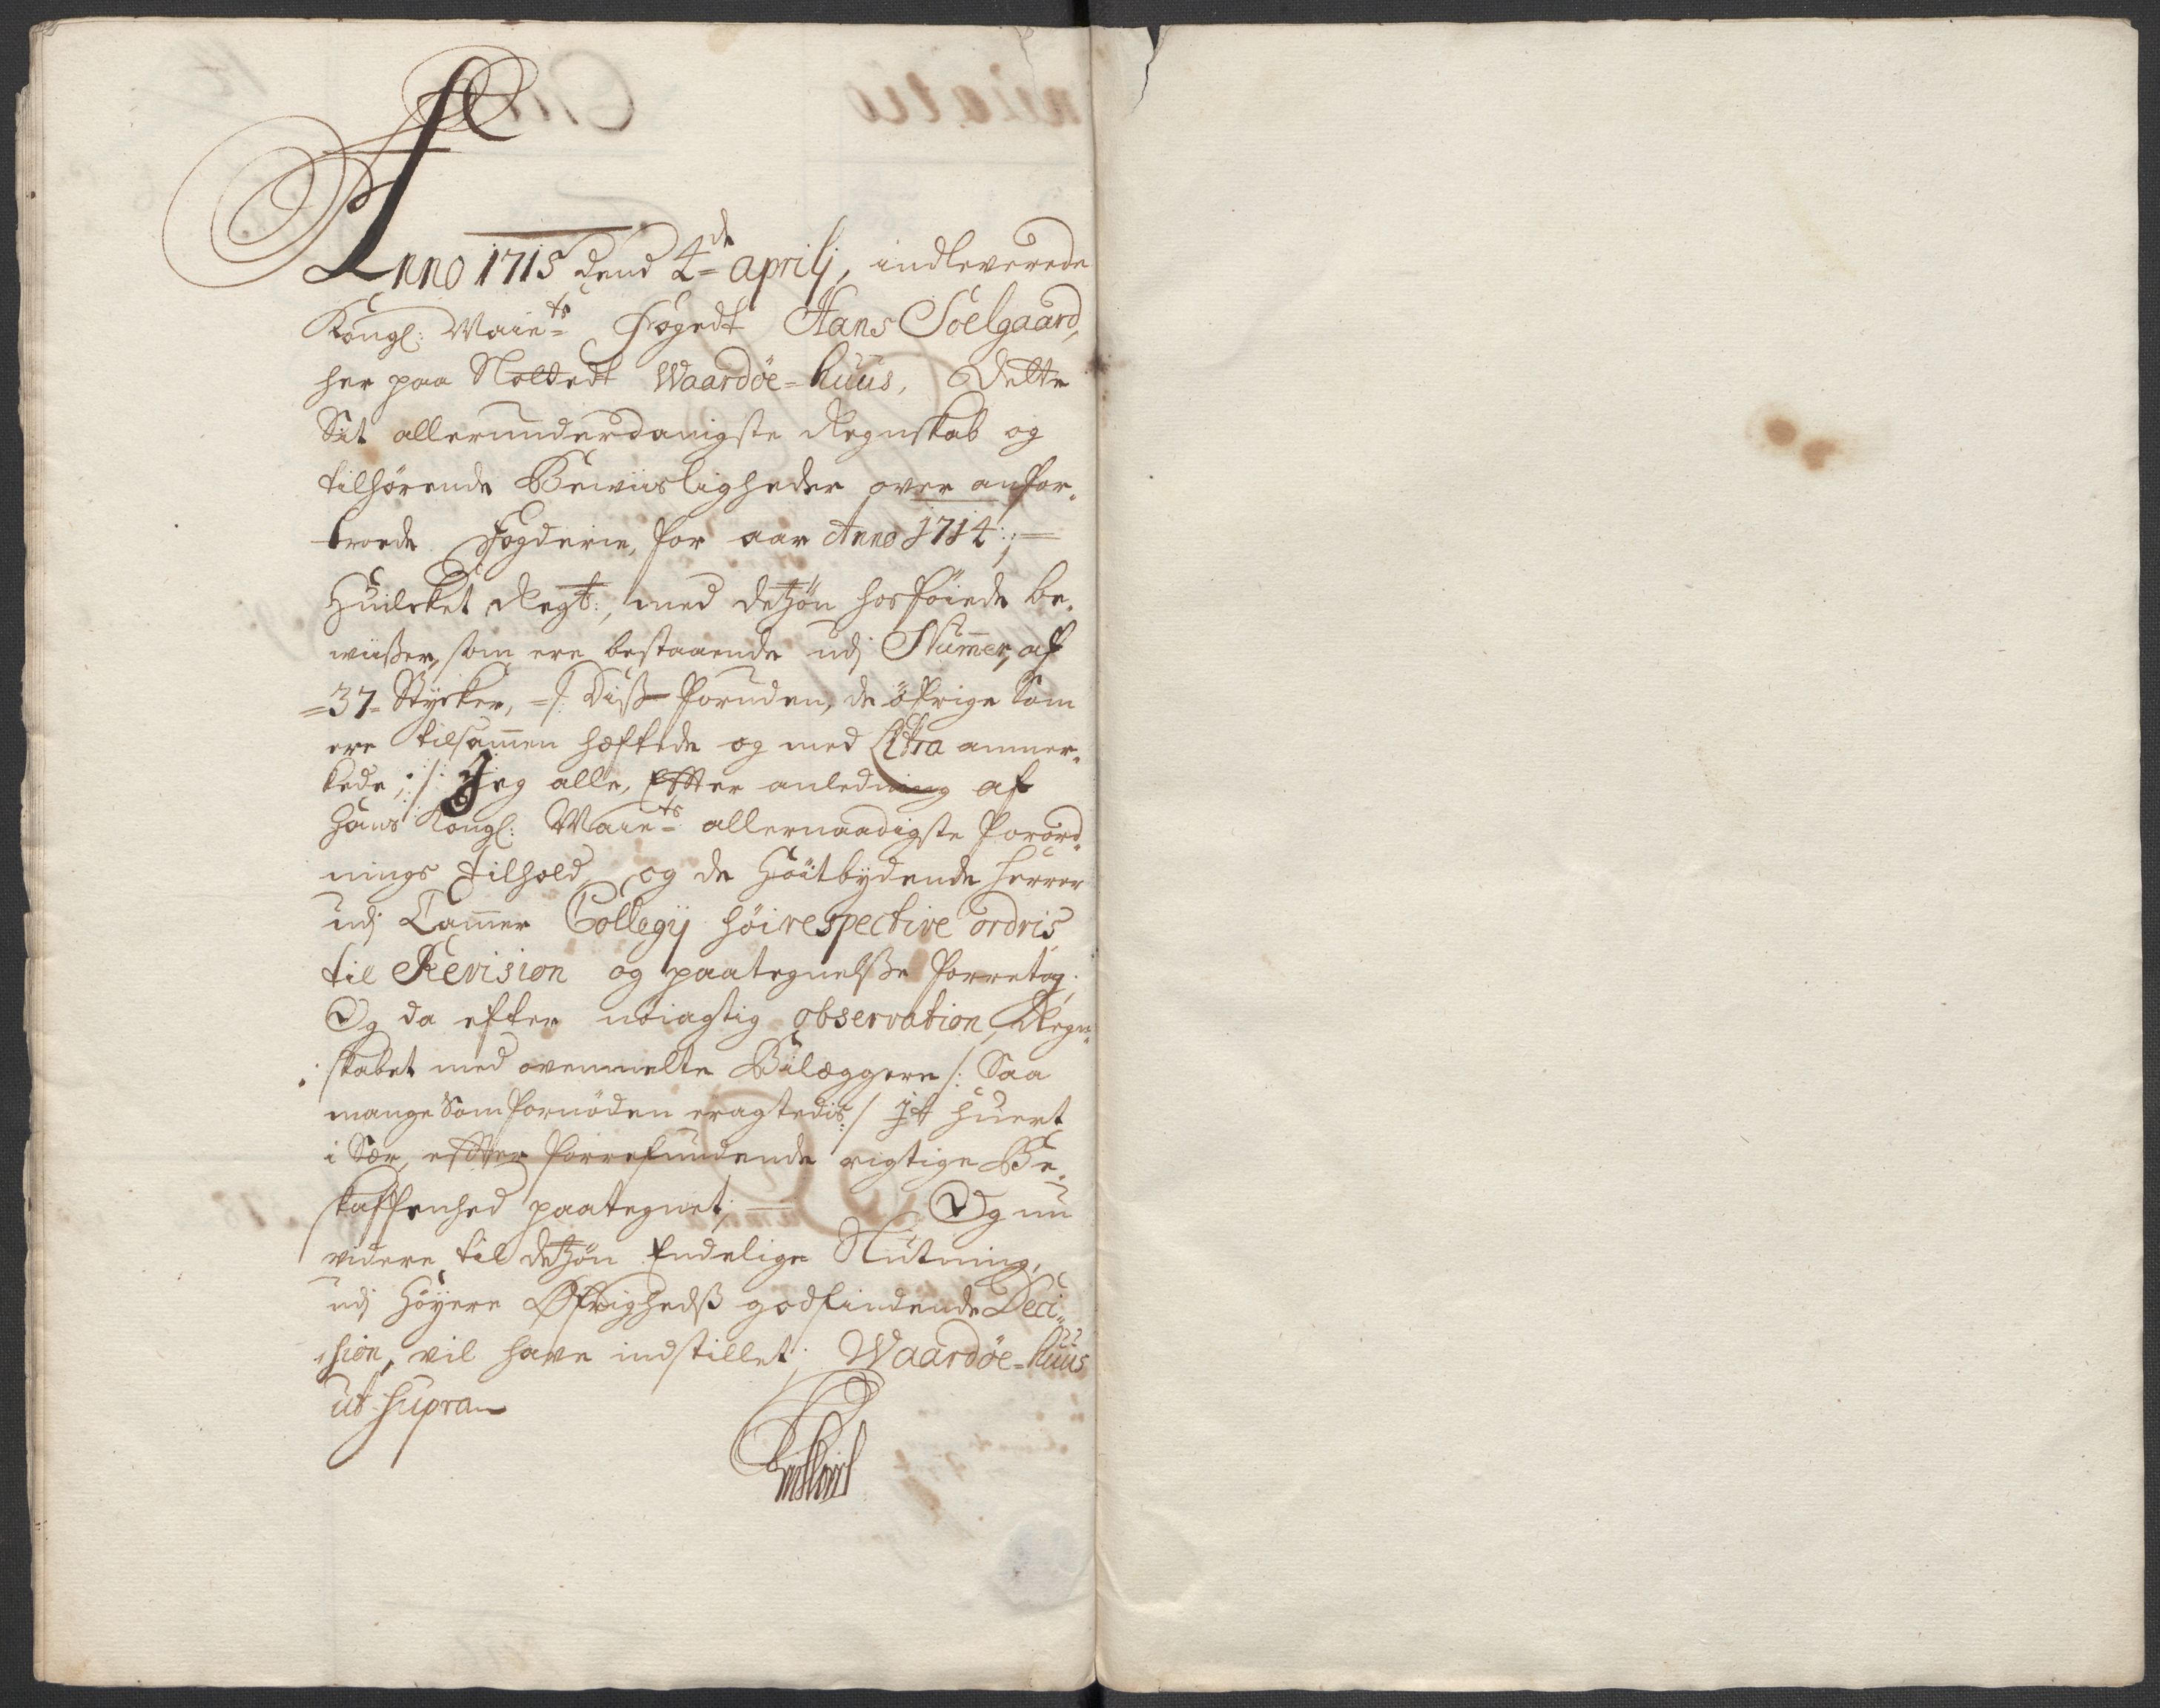 Anno 1715 dend 4de aprilj, indleverede
Kongl: Maiets Fogedt Hans Soelgaard,
her paa Slottedt Waardøe=huus, Dette
Sit allerunderdanigste Regnskab og
tilhørende Bewiisligheder over anfor„
troede Fogderie, for aar Anno 1714:;
Huilcket Regt:, med detzøn hosföiede be„
wiißer, som ere bestaaende udj Numer, af
=37= Stycker, =/: Diß foruden, de öfrige Som
ere tilsamen hæftede og med Litra anmer„
kede; :/: Jeg alle, Efter anledning af
Hans Kongl: Maiets allernaadigste forord„
nings tilhold, og de Höitbydende Herrer
udj Camer Collegij höirespective ordris
til Revision og paategnelße forretog;
Og da efter nöiagtig observation, Regn„
skabet med ovenmelte Bilæggere /: Saa
mange Som fornöden eragtedis :/ jt huert
i Sær, efter forrefundende rigtige Be„
skaffenhed paategnet; Og nu
videre til detzøn Endelige Slutning,
udj Höyere Øfrighedß godfindende Deci„
sion, vil have indstillet; Waardøe=huus
ut supra